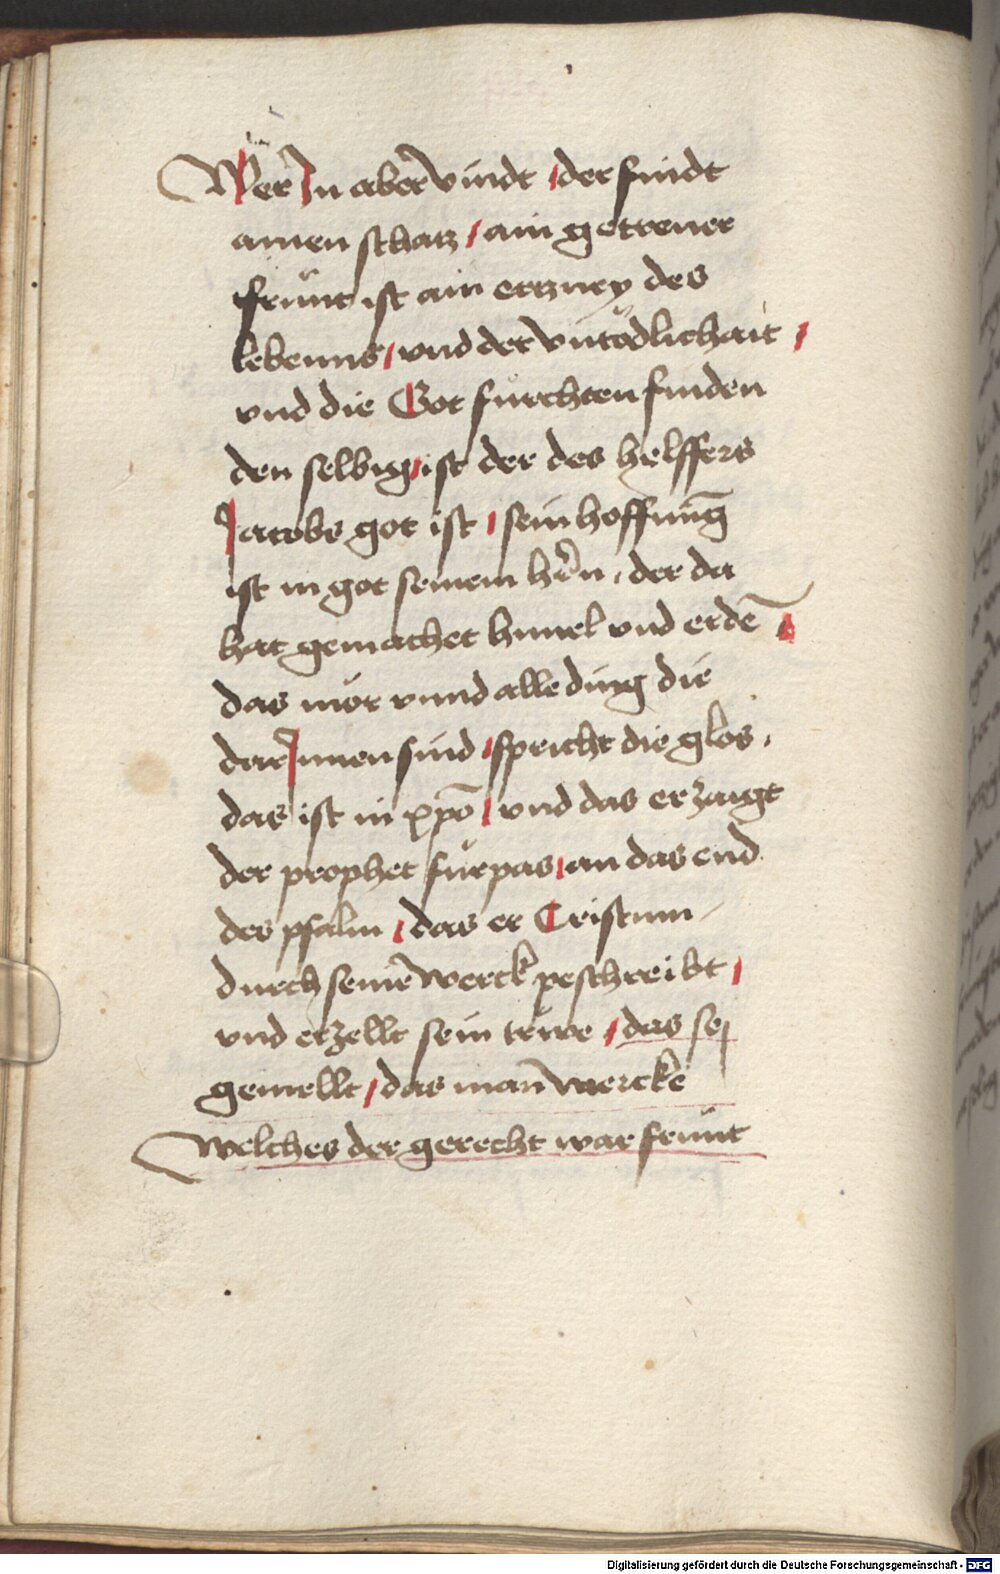 Wer In aber vindt / der findt
ainen schatz / ain getrewer
frünt ist ain ertzney des
lebenns / vnd der vntödlichait /
vnd die Got fürchten finden
den selbig / ist der des helffers
Jacobs got ist / sein hoffnūg
ist in got seinem hr̄n / der da
hat gemachet himel vnd erdē /
das mör vnnd alle ding die
darInnen sind / spricht die glos /
das ist in xp̄o / vnd das erzaigt
der prophet fürpas / an das end
des psalm / das er Cristum
durch seine werck peschreibt /
vnd erzellt sein trüwe / das sej
gemellt / das man wercke
Welches der gerecht war frünt
Digitalisierung gefördert durch die Deutsche Forschungsgemeinschaft - DFG